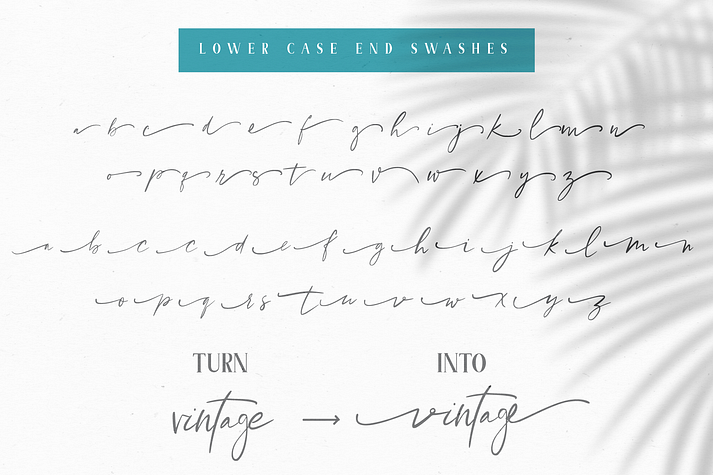 LOWER CASE END SWASHES
a b c d e f g h i j k l m n
o p q r s t u v w x y z
a b c c d e f g h i j k l m n
o p q r s t u v w x y z
TURN INTO
vintage → vintage